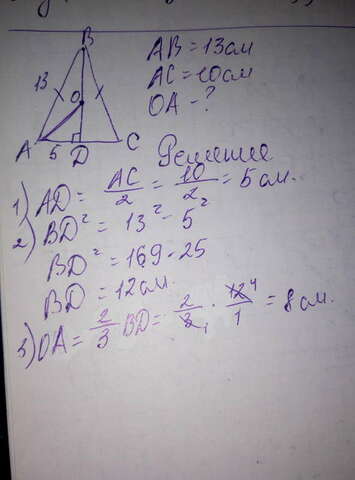 B
13
O
A 5 D C
AB = 13см
AC = 10см
OA - ?
Решение
1) AD = AC/2 = 10/2 = 5 см.
2) BD² = 13² - 5²
BD² = 169 - 25
BD = 12см.
3) OA = 2/3 BD = 2/3₁ · 12⁴/1 = 8 см.